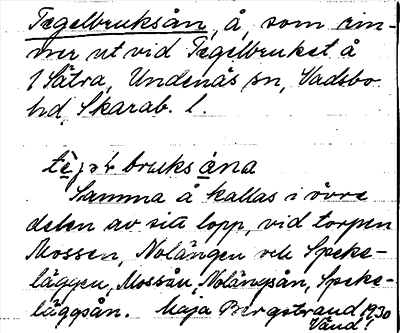 Tegelbruksån, å, som rin-
ner ut vid Tegelbruket å
1 Sätra, Undenäs sn, Vadsbo
hd, Skarab. l.
bruksåna
Samma å kallas i övre
delen av sitt lopp, vid torpen
Mossen, Nolängen och Speke-
läggen, Mossån, Nolängsån, Speke-
läggsån. Maja Bergstrand 1930
Vänd!